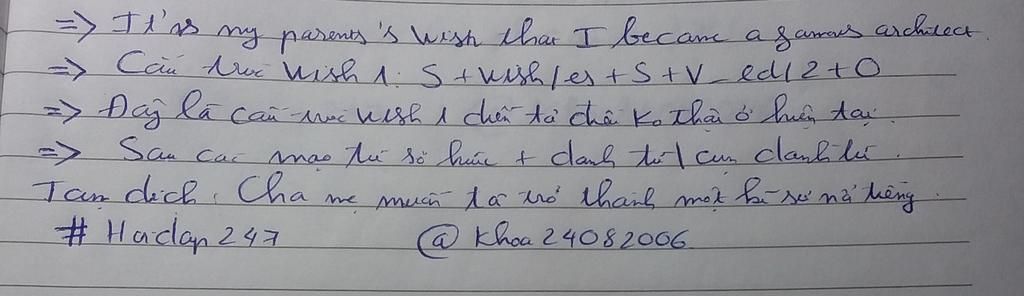 => It's my parents's wish that I became a famous architect.
=> Cấu trúc Wish 1: S + wish/es + S + V_ed/2 + O
=> Đây là cấu trúc wish 1 diễn tả điều ko thật ở hiện tại.
=> Sau các mạo từ sở hữu + danh từ / cụm danh từ.
Tạm dịch: Cha mẹ muốn tôi trở thành một kĩ sư nổi tiếng.
# Hoidap247 @Khoa24082006